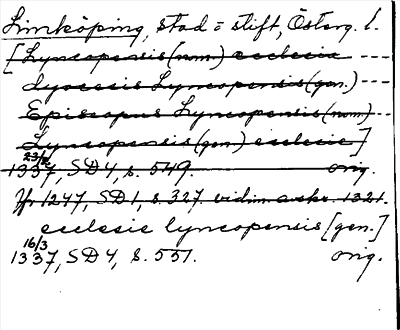 Linköping, stad = stift, Österg. l.
[Lyncopensis (nom.) ecclesie ---
dyocesis Lyncopensis (gen.) ---
Episcopus Lyncopensis (nom.) --
Lyncopensis (gen.) ecclesie]
23/2 1337, SD4, s. 549. orig.
Jfr 1247, SD1, s. 327 vidim. avskr. 1321.
ecclesie lyncopensis [gen.]
16/3 1337, SD4, s. 551. orig.